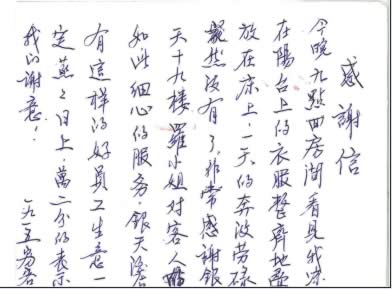 感謝信
今晚九點回房間看見我凉
在陽台上的衣服整齊地疊
放在床上,一天的奔波勞碌
竟然沒有了,非常感謝銀
天十九樓羅小姐對客人
如此細心的服務。銀天
有這樣的好員工生意一
定蒸々日上,萬二分的表示
我的謝意! 一九一五房客